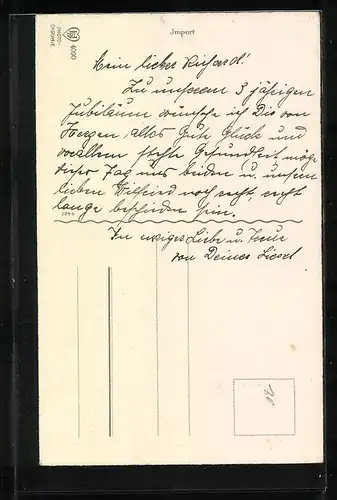 Import
PHOTOCHROMIE 4060
Mein lieber Richard!
Zu unserem 3 jährigen
Jubiläum wünsche ich Dir von
Herzen, alles Gute Glück und
vorallem stehte Gesundheit möge
dieser Tag uns beiden u. unseren
lieben Wilfried noch recht, recht
lange beschieden sein.
In ewiger Liebe u. Treue
von Deiner Liesel